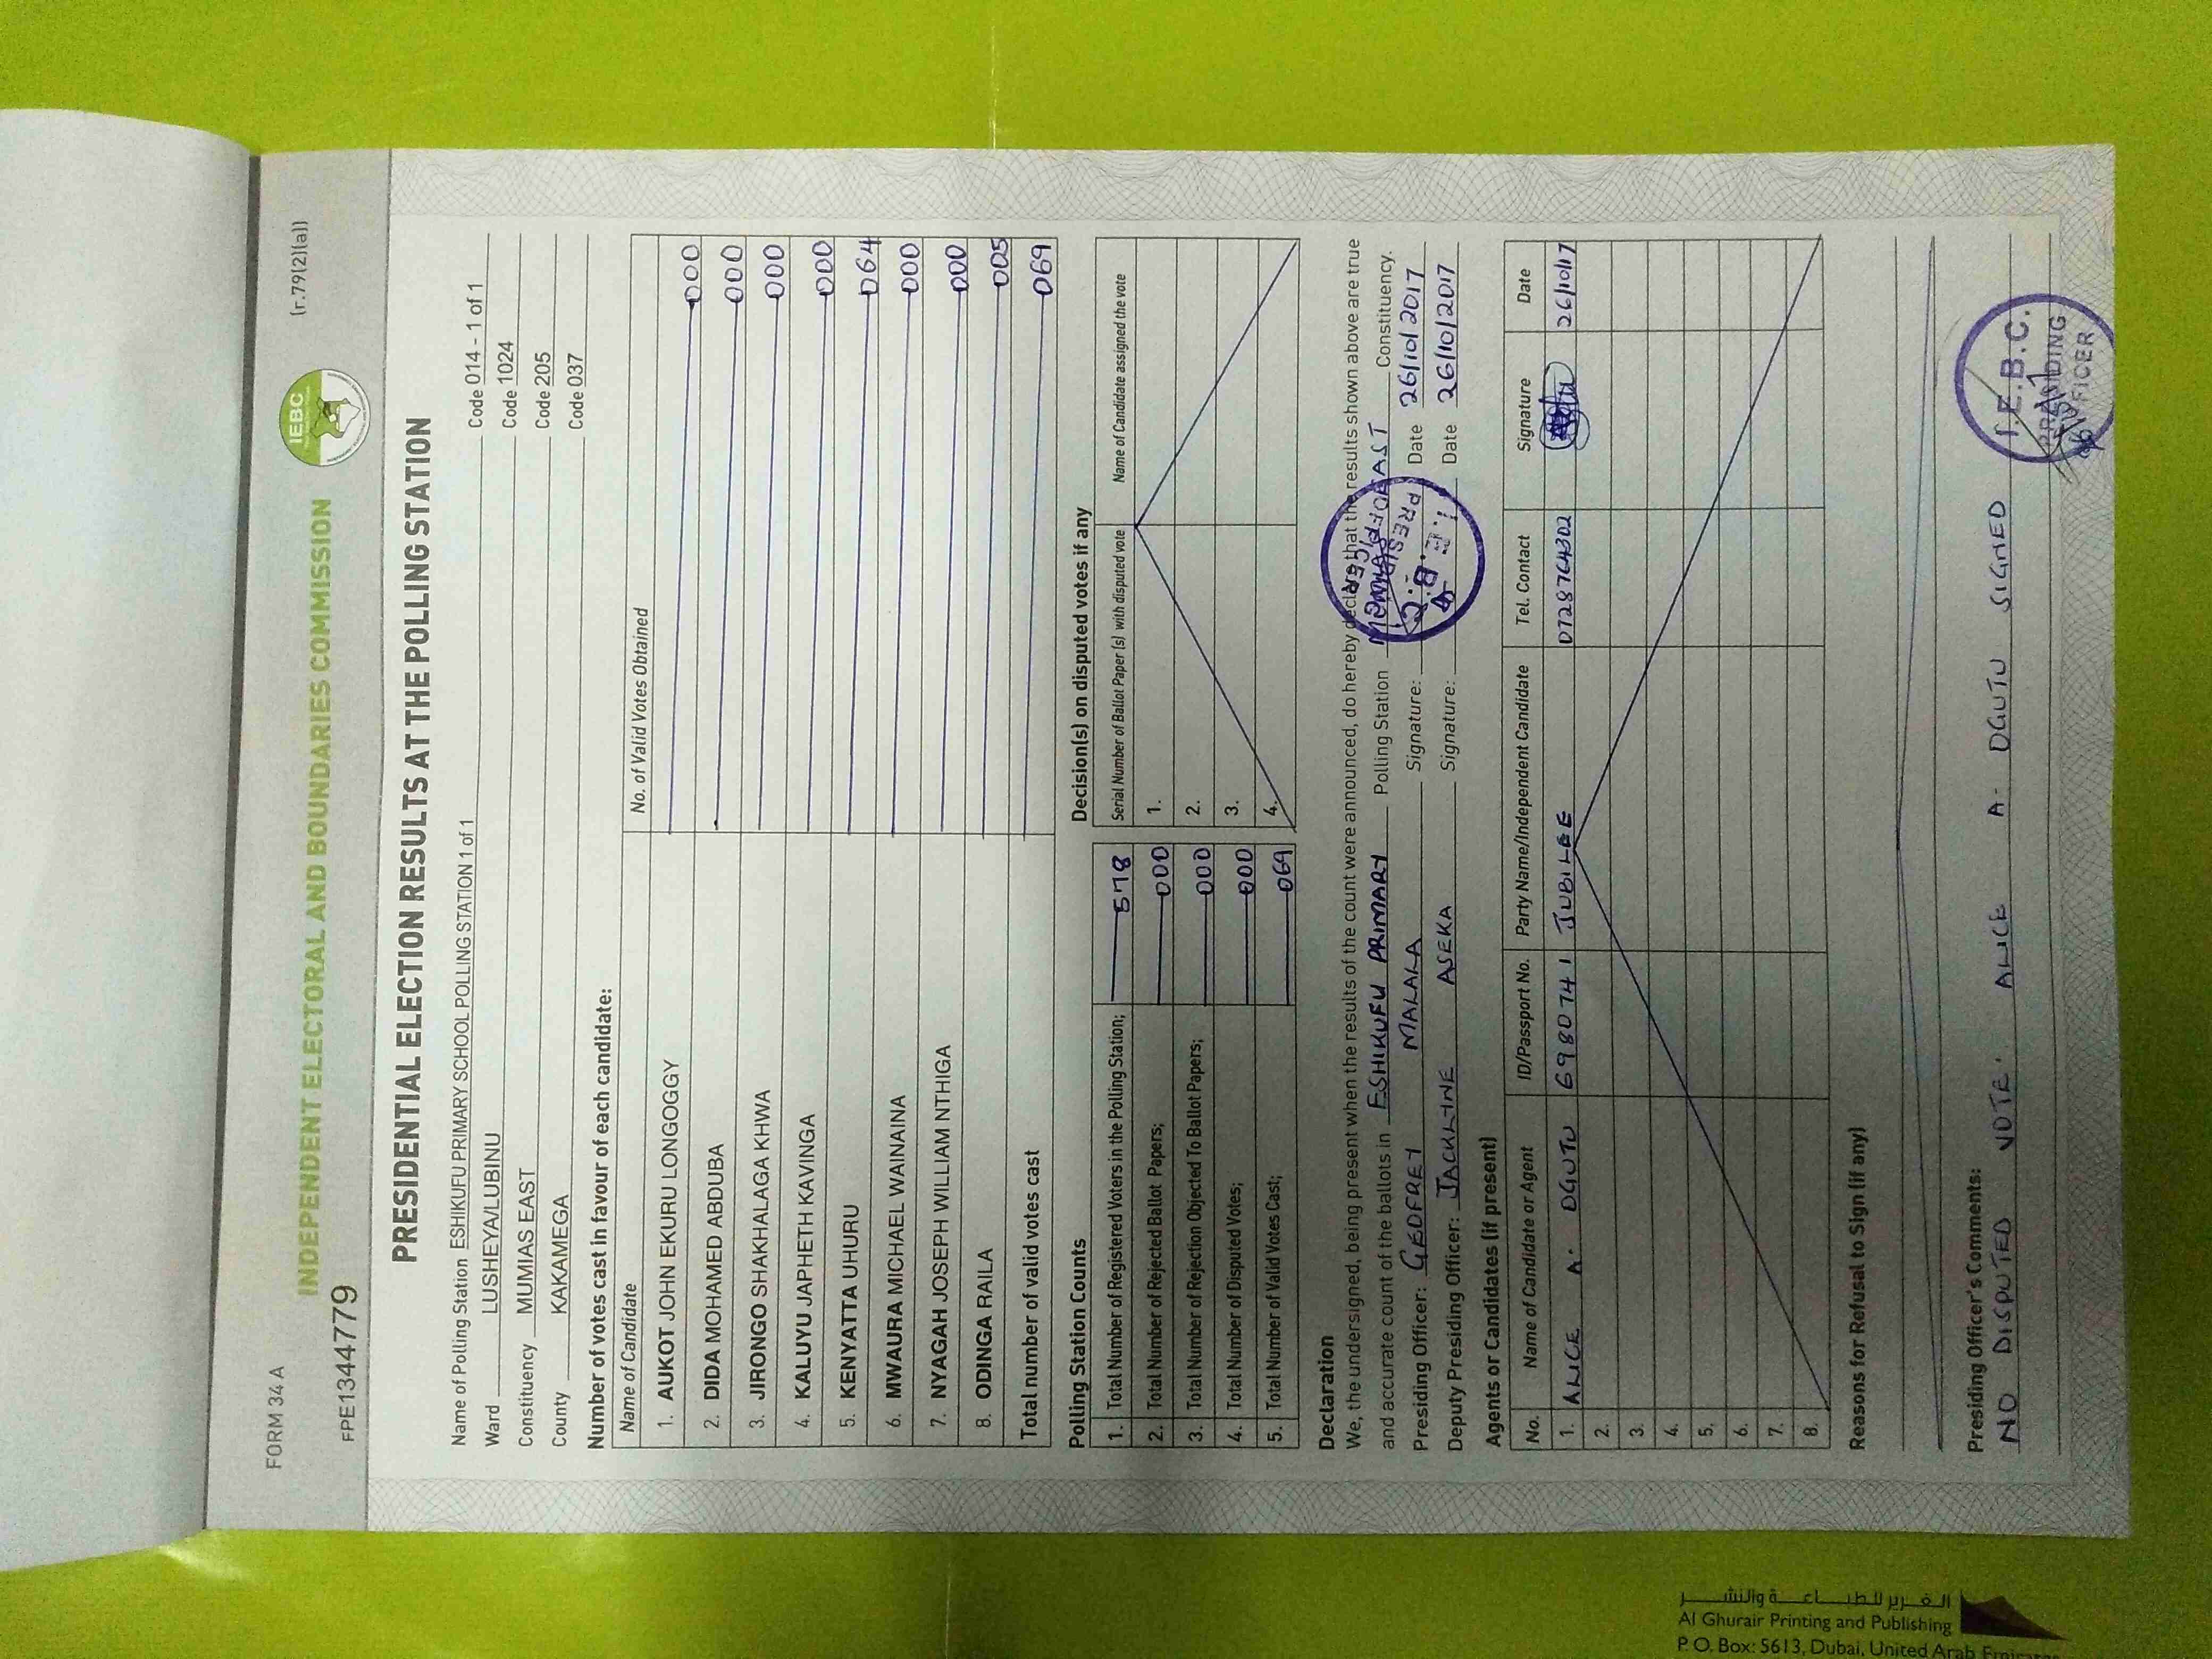 FORM 34 A
(r.79(2)(a))
INDEPENDENT ELECTORAL AND BOUNDARIES COMMISSION
IEBC
FPE1344779
PRESIDENTIAL ELECTION RESULTS AT THE POLLING STATION
Name of Polling Station ESHIKUFU PRIMARY SCHOOL POLLING STATION 1 of 1 Code 014 - 1 of 1
Ward LUSHEYA/LUBINU Code 1024
Constituency MUMIAS EAST Code 205
County KAKAMEGA Code 037
Number of votes cast in favour of each candidate:
Name of Candidate No. of Valid Votes Obtained
1. AUKOT JOHN EKURU LONGOGGY 000
2. DIDA MOHAMED ABDUBA 000
3. JIRONGO SHAKHALAGA KHWA 000
4. KALUYU JAPHETH KAVINGA 000
5. KENYATTA UHURU 064
6. MWAURA MICHAEL WAINAINA 000
7. NYAGAH JOSEPH WILLIAM NTHIGA 000
8. ODINGA RAILA 005
Total number of valid votes cast 069
Polling Station Counts
1. Total Number of Registered Voters in the Polling Station; 578
2. Total Number of Rejected Ballot Papers; 000
3. Total Number of Rejection Objected To Ballot Papers; 000
4. Total Number of Disputed Votes; 000
5. Total Number of Valid Votes Cast; 069
Decision(s) on disputed votes if any
Serial Number of Ballot Paper (s) with disputed vote Name of Candidate assigned the vote
1.
2.
3.
4.
Declaration
We, the undersigned, being present when the results of the count were announced, do hereby declare that the results shown above are true
and accurate count of the ballots in ESHIKUFU PRIMARY Polling Station MUMIAS EAST Constituency.
Presiding Officer: GEOFREY MALALA Signature: Date 26/10/2017
Deputy Presiding Officer: JACKLINE ASEKA Signature: Date 26/10/2017
I.E.B.C. PRESIDING OFFICER
Agents or Candidates (if present)
No. Name of Candidate or Agent ID/Passport No. Party Name/Independent Candidate Tel. Contact Signature Date
1. ALICE A. OGUTU 6980741 JUBILEE 0728764302 26/10/17
2.
3.
4.
5.
6.
7.
8.
Reasons for Refusal to Sign (if any)
Presiding Officer's Comments:
NO DISPUTED VOTE. ALICE A. OGUTU SIGNED
I.E.B.C. PRESIDING OFFICER
الغرير للطباعة والنشر
Al Ghurair Printing and Publishing
P. O. Box: 5613, Dubai, United Arab Emirates